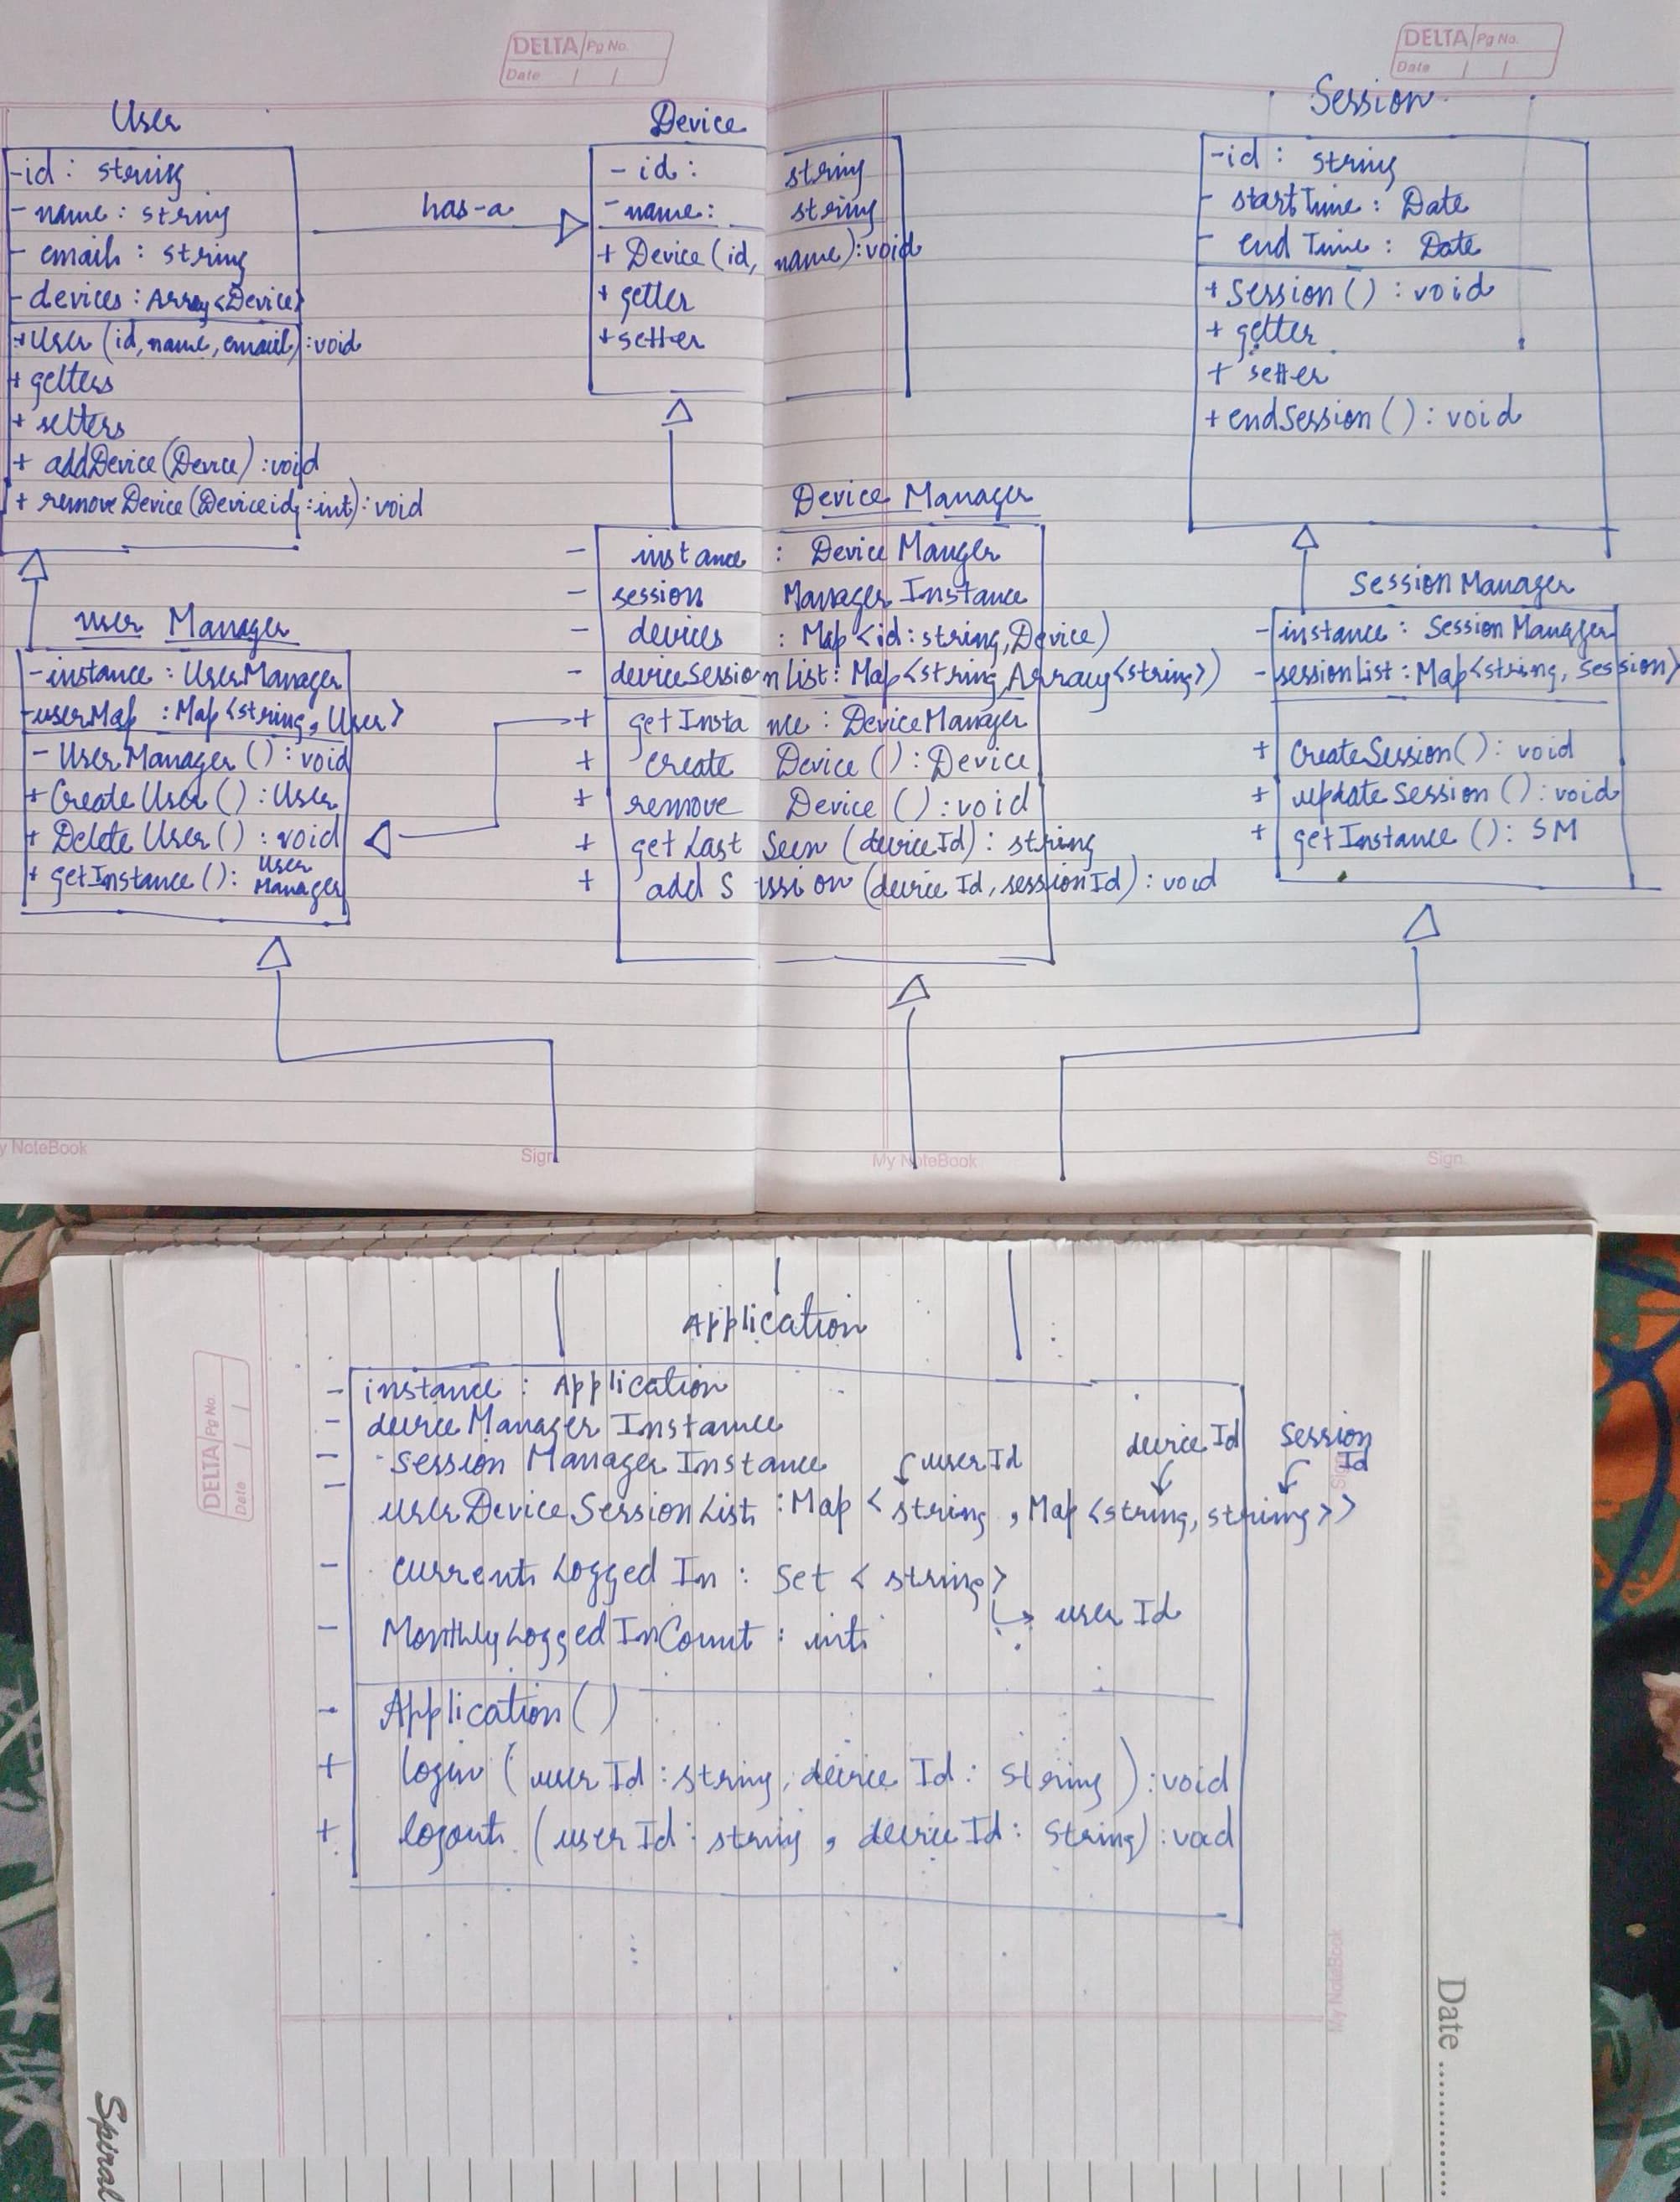 DELTA Pg No.
Date / /
DELTA Pg No.
Date / /
User
-id : string
- name : string
- email : string
- devices : Array<Device>
+ User (id, name, email) : void
+ getters
+ setters
+ addDevice (Device) : void
+ removeDevice (Deviceid : int) : void
has-a
Device
- id : string
- name : string
+ Device (id, name) : void
+ getter
+ setter
Session
-id : string
- startTime : Date
- end Time : Date
+ Session ( ) : void
+ getter
+ setter
+ endSession ( ) : void
User Manager
- instance : UserManager
- userMap : Map<string, User>
- User Manager ( ) : void
+ Create User ( ) : User
+ Delete User ( ) : void
+ getInstance ( ) : User Manager
Device Manager
- instance : Device Manger
- session Manager Instance
- devices : Map <id : string, Device)
- deviceSession List : Map <string, Array<string>)
+ getInstance : DeviceManager
+ create Device ( ) : Device
+ remove Device ( ) : void
+ get Last Seen (deviceId) : string
+ add Session (device Id, sessionId) : void
Session Manager
- instance : Session Manager
- sessionList : Map<string, Session)
+ CreateSession( ) : void
+ update Session ( ) : void
+ getInstance ( ) : SM
My NoteBook
Sign
My NoteBook
Sign
DELTA Pg No.
Date / /
Application
- instance : Application
- deviceManager Instance
- Session Manager Instance
userId
device Id
Session Id
- userDeviceSessionList : Map < string , Map <string, string>>
- current Logged In : Set < string>
user Id
- Monthly Logged InCount : int
- Application ( )
+ login ( user Id : string, device Id : string ) : void
+ logout (user Id : string , device Id : String) : void
My NoteBook
Date
Spiral